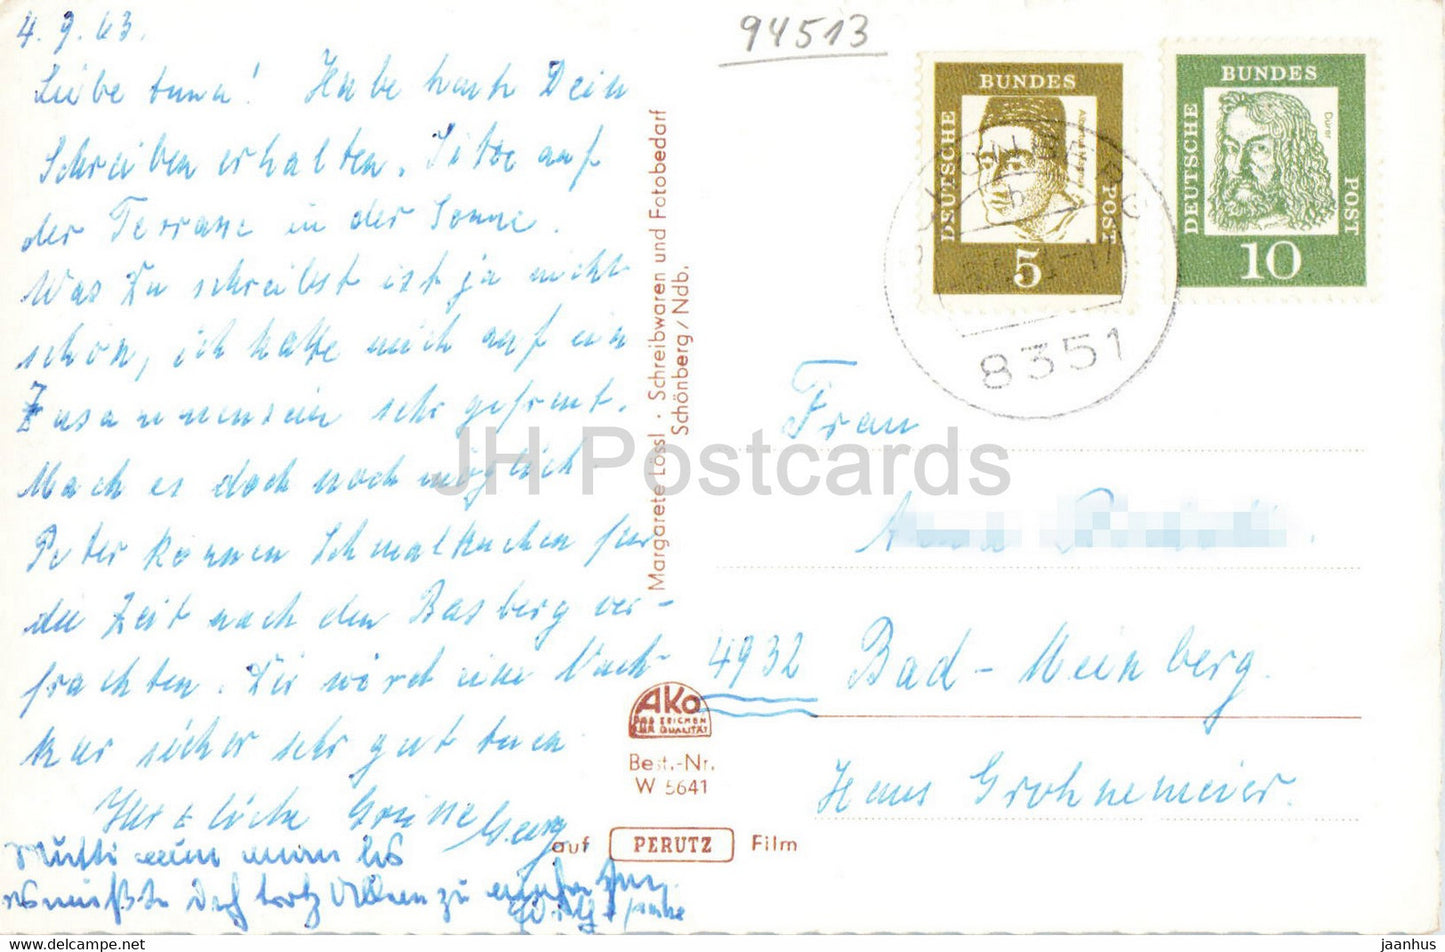 4. 9. 63.
Liebe Anna! Habe heute Dein
Schreiben erhalten. Sitze auf
der Terrasse in der Sonne.
Was Du schreibst ist ja nicht
schön, ich hatte mich auf ein
Zusammensein sehr gefreut.
Mach es doch noch möglich.
Peter können Schmalkuchen für
die Zeit nach den Basberg ver-
frachten. Dir wird eine Nach-
kur sicher sehr gut tuen
Herzliche Grüsse Georg
Margarete Lössl · Schreibwaren und Fotobedarf
Schönberg/Ndb.
AKo
DAS ZEICHEN
FÜR QUALITÄT
Best.-Nr.
W 5641
auf PERUTZ Film
94513
DEUTSCHE BUNDES POST
5
DEUTSCHE BUNDES POST
Dürer
10
8351
Frau
4932 Bad-Meinberg.
Haus Grohnemeier.
JH Postcards
www.hippostcard.com
jaanhus